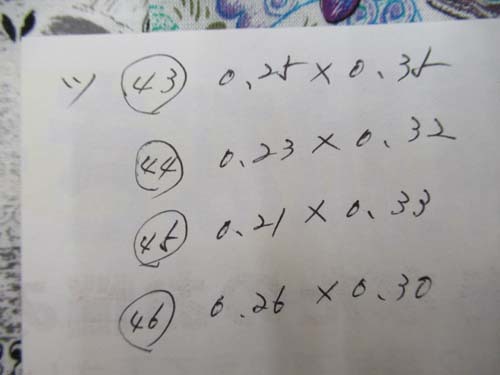 ツ ㊸ 0.25 × 0.35
㊹ 0.23 × 0.32
㊺ 0.21 × 0.33
㊻ 0.26 × 0.30